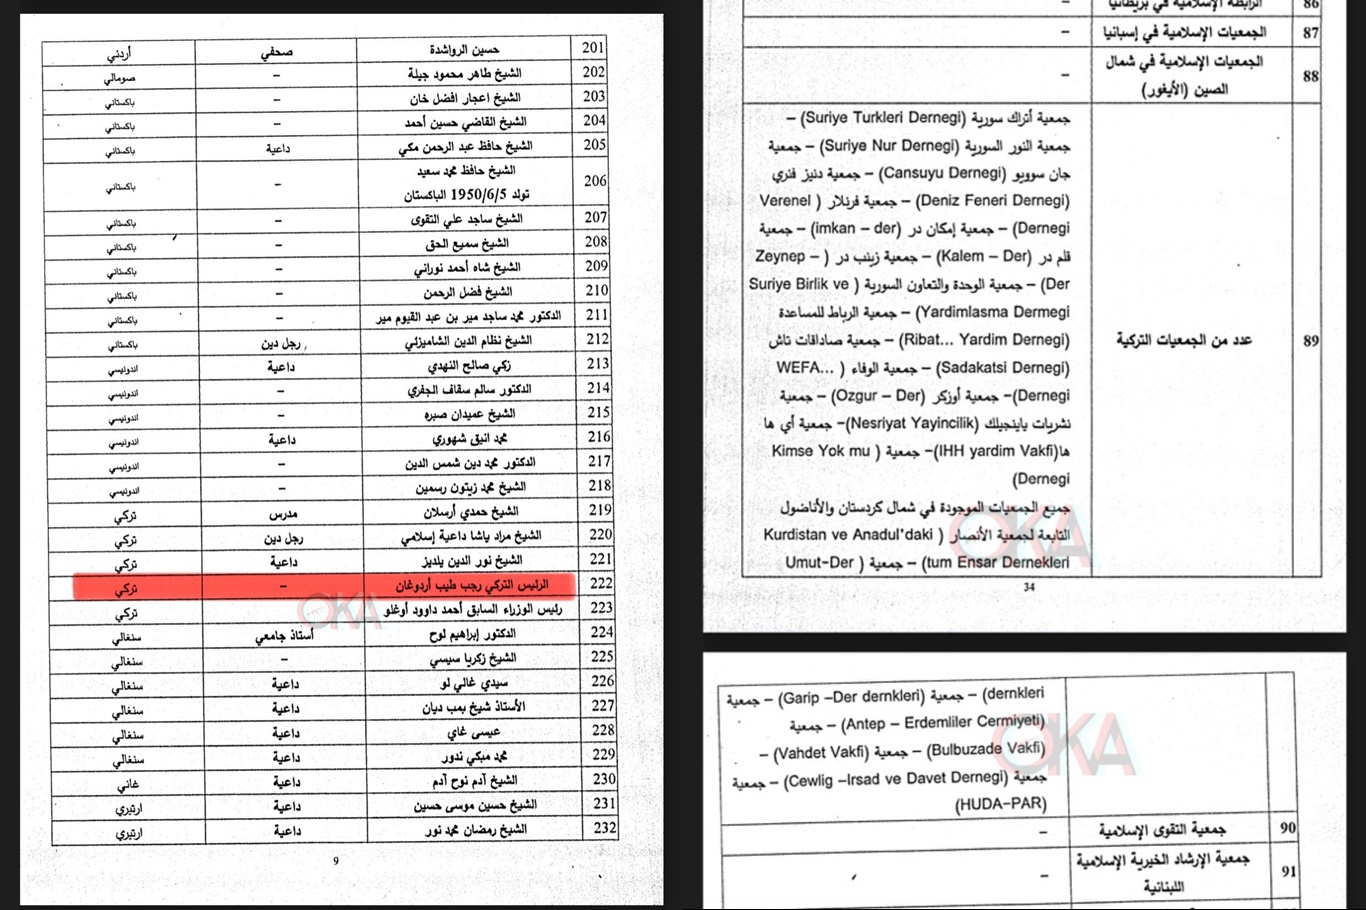 201 حسين الرواشدة صحفي أردني
202 الشيخ طاهر محمود جيلة – صومالي
203 الشيخ اعجار افضل خان – باكستاني
204 الشيخ القاضي حسين أحمد – باكستاني
205 الشيخ حافظ عبد الرحمن مكي داعية باكستاني
206 الشيخ حافظ محمد سعيد – باكستاني
تولد 1950/6/5 الباكستان
207 الشيخ ساجد علي التقوى – باكستاني
208 الشيخ سميع الحق – باكستاني
209 الشيخ شاه أحمد نوراني – باكستاني
210 الشيخ فضل الرحمن – باكستاني
211 الدكتور محمد ساجد مير بن عبد القيوم مير – باكستاني
212 الشيخ نظام الدين الشاميزلي رجل دين باكستاني
213 زكي صالح النهدي داعية اندونيسي
214 الدكتور سالم سقاف الجفري – اندونيسي
215 الشيخ عميدان صبره – اندونيسي
216 محمد انيق شهوري داعية اندونيسي
217 الدكتور محمد دين شمس الدين – اندونيسي
218 الشيخ محمد زيتون رسمين – اندونيسي
219 الشيخ حمدي أرسلان مدرس تركي
220 الشيخ مراد ياشا داعية إسلامي رجل دين تركي
221 الشيخ نور الدين يلديز داعية تركي
222 الرئيس التركي رجب طيب أردوغان – تركي
223 رئيس الوزراء السابق أحمد داوود أوغلو تركي
224 الدكتور إبراهيم لوح أستاذ جامعي سنغالي
225 الشيخ زكريا سيسي – سنغالي
226 سيدي غالي لو داعية سنغالي
227 الأستاذ شيخ بمب ديان داعية سنغالي
228 عيسى غاي داعية سنغالي
229 محمد مبكي ندور داعية سنغالي
230 الشيخ آدم نوح آدم داعية غاني
231 الشيخ حسين موسى حسين داعية ارتيري
232 الشيخ رمضان محمد نور داعية ارتيري
9
OKA
86 الرابطة الإسلامية في بريطانيا –
87 الجمعيات الإسلامية في إسبانيا –
88 الجمعيات الإسلامية في شمال –
الصين (الأيغور)
89 عدد من الجمعيات التركية
جمعية أتراك سورية (Suriye Turkleri Dernegi) –
جمعية النور السورية (Suriye Nur Dernegi) – جمعية
جان سوويو (Cansuyu Dernegi) – جمعية دنيز فنري
(Deniz Feneri Dernegi) – جمعية فرنلار ( Verenel
Dernegi) – جمعية إمكان در (imkan – der) – جمعية
قلم در (Kalem – Der) – جمعية زينب در ( – Zeynep
Der) – جمعية الوحدة والتعاون السورية ( Suriye Birlik ve
Yardimlasma Dermegi) – جمعية الرباط للمساعدة
(Ribat... Yardim Dernegi) – جمعية صاداقات تاش
(Sadakatsi Dernegi) – جمعية الوفاء ( ...WEFA
Dernegi)– جمعية أوزكر (Ozgur – Der) – جمعية
نشريات ياينجيلك (Nesriyat Yayincilik)– جمعية أي ها
ها(IHH yardim Vakfi)– جمعية ( Kimse Yok mu
Dernegi)
جميع الجمعيات الموجودة في شمال كردستان والأناضول
التابعة لجمعية الأنصار ( Kurdistan ve Anadul'daki
tum Ensar Dernekleri) – جمعية ( Umut-Der
OKA
34
dernkleri) – جمعية (Garip –Der dernkleri) – جمعية
(Antep – Erdemliler Cermiyeti) – جمعية
(Bulbuzade Vakfi) – جمعية (Vahdet Vakfi) –
جمعية (Cewlig –Irsad ve Davet Dernegi) – جمعية
(HUDA-PAR)
OKA
90 جمعية التقوى الإسلامية –
91 جمعية الإرشاد الخيرية الإسلامية –
اللبنانية